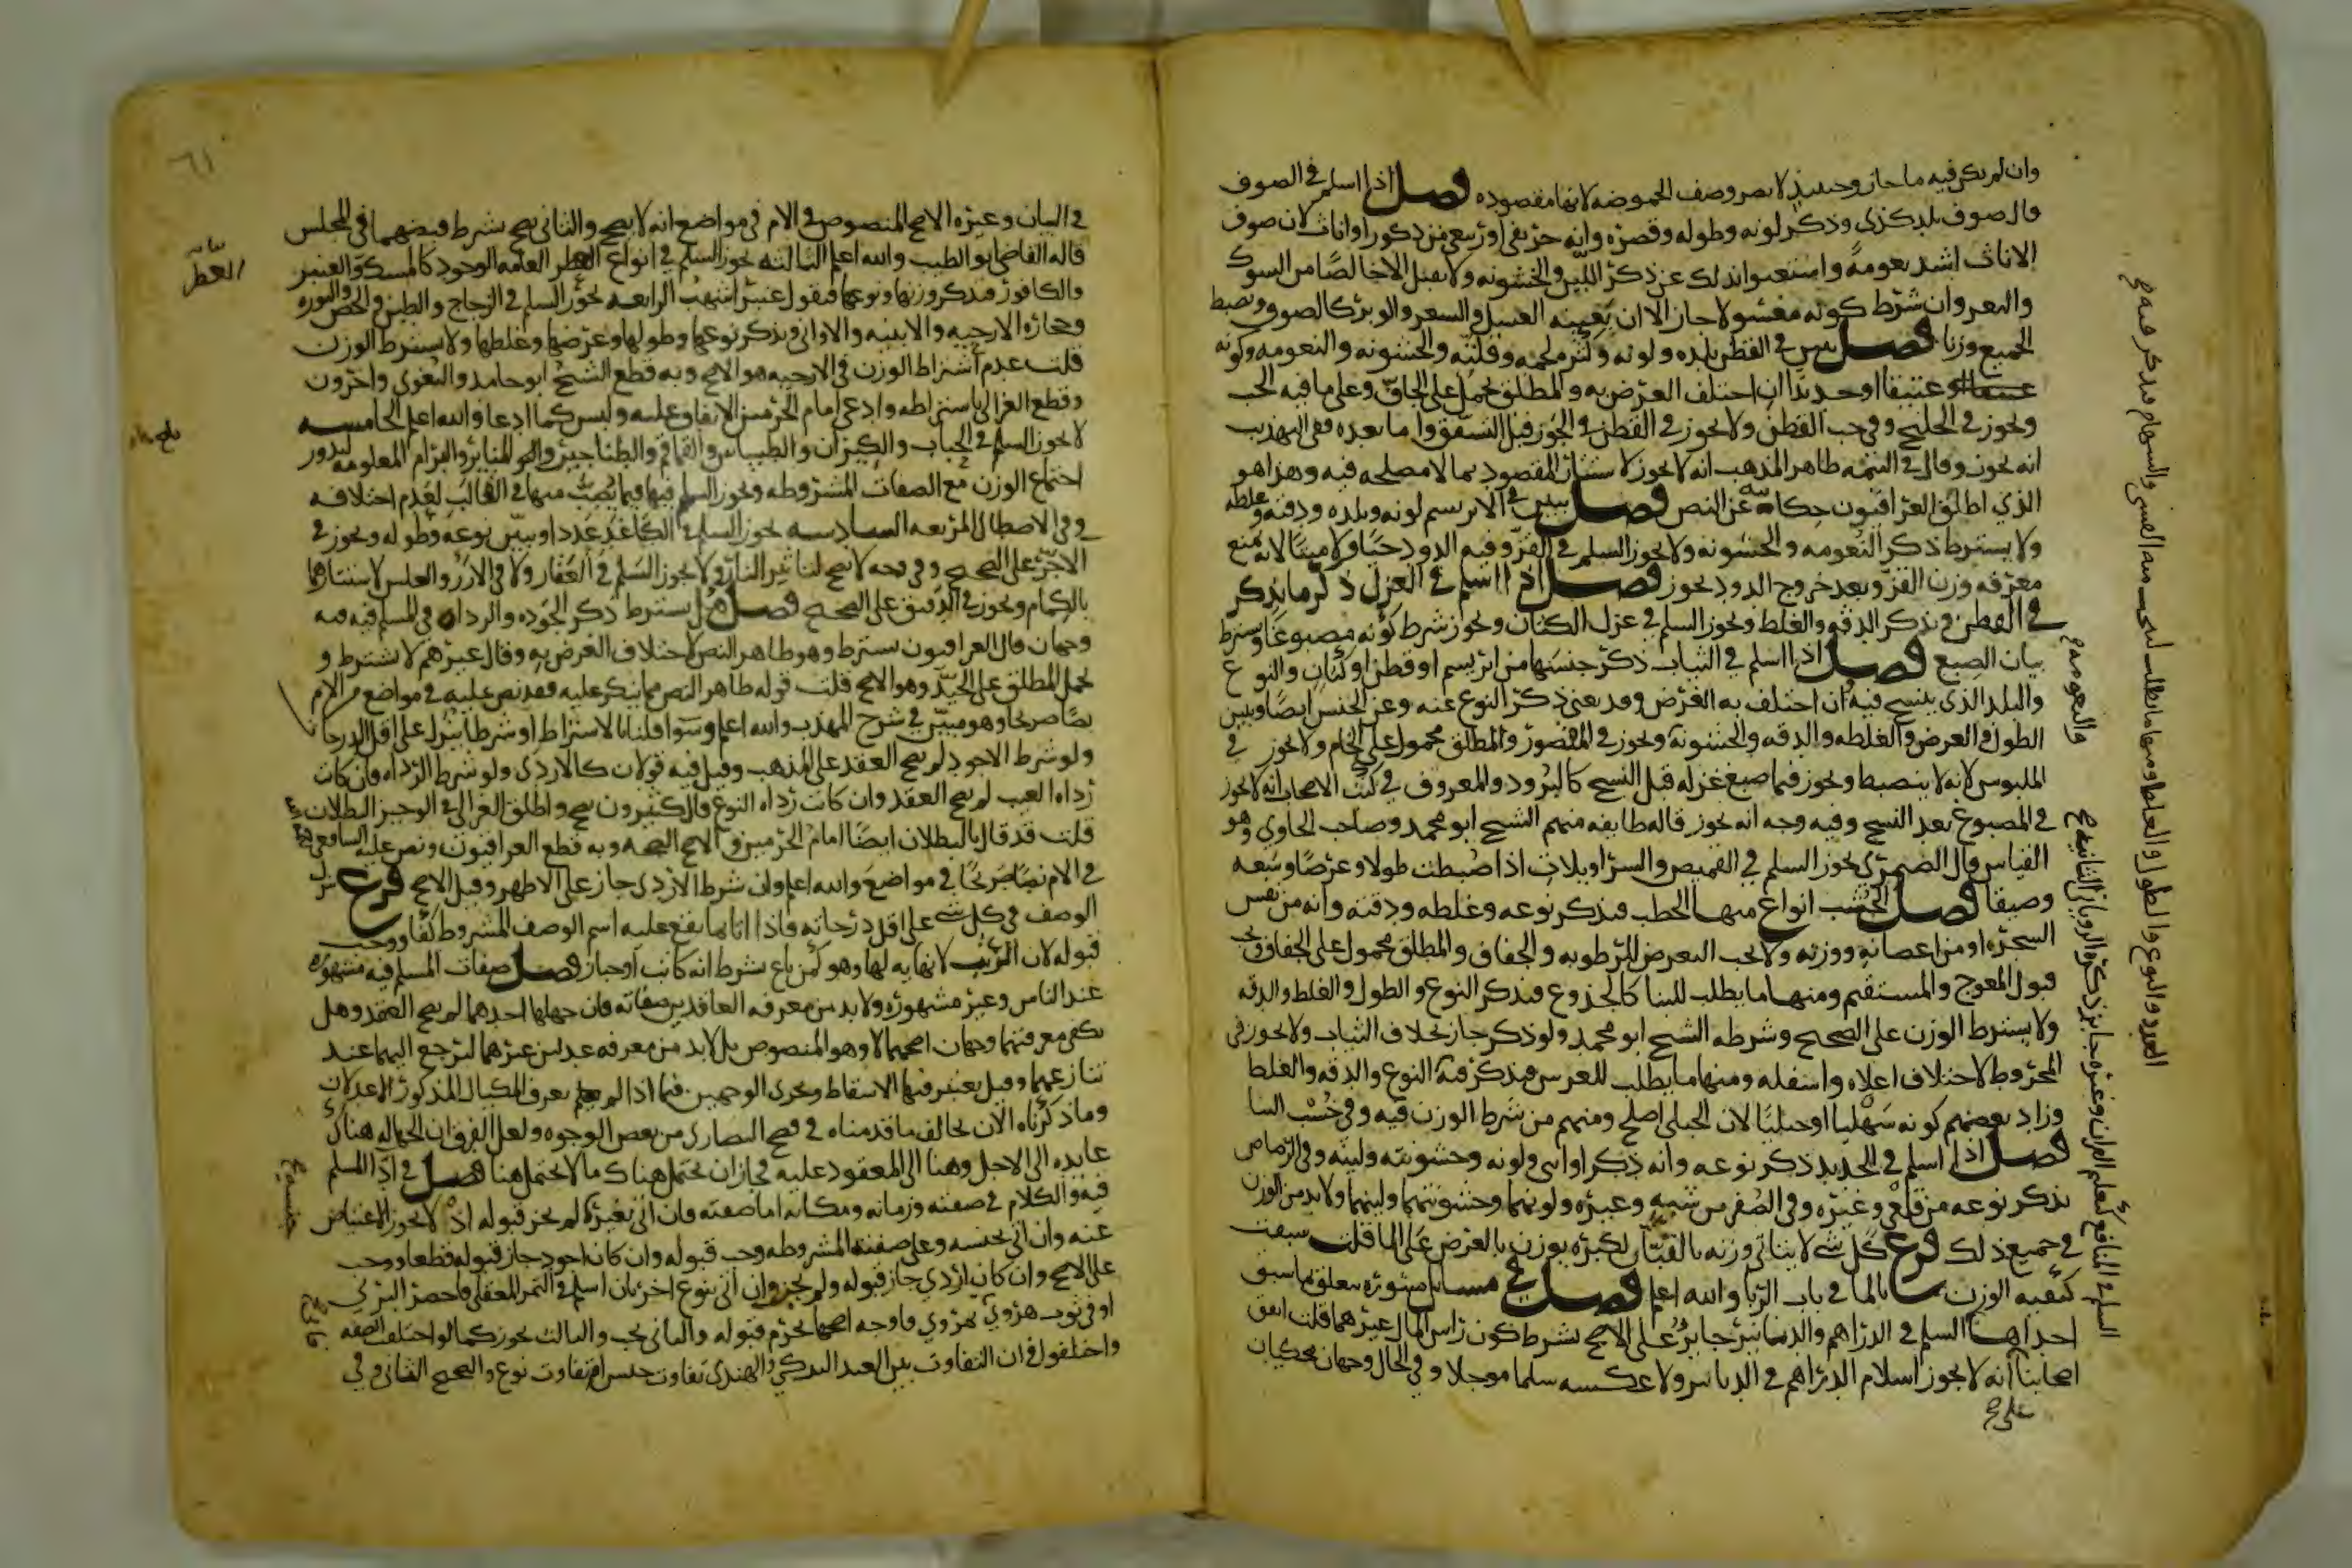 وان لم يكن فيه ماء جاز وحينئذ لا يضر وصف الحموضه لانها مقصوده فصل اذا اسلم في الصوف
قال صوف بلد كذى وذكر لونه وطوله وقصره وانه خريفي او ربيعي من ذكور او اناث لان صوف
الاناث اشد نعومه واستغنوا بذلك عن ذكر اللين والخشونه ولا يقبل الا خالصا من الشوك
والبعر وان شرط كونه مغسولا جاز الا ان يعيبه الغسل والشعر والوبر كالصوف ويضبط
الجميع وزنا فصل يبين في القطن بلده ولونه وكثرة لحمه وقلته والخشونه والنعومه وكونه
عتيقا او حديثا ان اختلف الغرض به والمطلق يحمل على الجاف وعلى ما فيه الحب
ويجوز في الحليج وفي حب القطن ولا يجوز في القطن في الجوز قبل التشقق واما بعده ففي التهذيب
انه يجوز وقال في التتمه ظاهر المذهب انه لا يجوز لاستتار المقصود بما لا مصلحه فيه وهذا هو
الذي اطلق العراقيون حكايته عن النص فصل يبين في الابريسم لونه وبلده ودقته وغلظه
ولا يشترط ذكر النعومه والخشونه ولا يجوز السلم في القز وفيه الدود حيا ولا ميتا لانه يمنع
معرفه وزن القز وبعد خروج الدود يجوز فصل اذا اسلم في الغزل ذكر ما يذكر
في القطن ويذكر الدقه والغلظ ويجوز السلم في غزل الكتان ويجوز شرط كونه مصبوغا ويشترط
بيان الصبغ فصل اذا اسلم في الثياب ذكر جنسها من ابريسم او قطن او كتان والنوع
والبلد الذي ينسج فيه ان اختلف به الغرض وقد يغني ذكر النوع عنه وعن الجنس ايضا ويبين
الطول والعرض والغلظه والدقه والخشونه ويجوز في المقصور والمطلق محمول على الخام ولا يجوز في
الملبوس لانه لا ينضبط ويجوز فيما صبغ غزله قبل النسج كالبرود والمعروف في كتب الاصحاب انه لا يجوز
في المصبوغ بعد النسج وفيه وجه انه يجوز قاله طايفه منهم الشيخ ابو محمد وصاحب الحاوي وهو
القياس قال الصيمري يجوز السلم في القميص والسراويلات اذا ضبطت طولا وعرضا وسعه
وضيقا فصل الخشب انواع منها الحطب فيذكر نوعه وغلظه ودقته وانه من نفس
الشجره او من اغصانه ووزنه ولا يجب التعرض للرطوبه والجفاف والمطلق محمول على الجفاف ويجب
قبول المعوج والمستقيم ومنها ما يطلب للبنا كالجذوع فيذكر النوع والطول والغلظ والدقه
ولا يشترط الوزن على الصحيح وشرطه الشيخ ابو محمد ولو ذكر جاز بخلاف الثياب ولا يجوز في
المخروط لاختلاف اعلاه واسفله ومنها ما يطلب للغرس فيذكر فيه النوع والدقه والغلظ
وزاد بعضهم كونه سهليا او جبليا لان الجبلي اصلح ومنهم من شرط الوزن فيه وفي خشب البنا
فصل اذا اسلم في الحديد ذكر نوعه وانه ذكر او انثى ولونه وخشونته ولينه وفي الرصاص
يذكر نوعه من قلعي وغيره وفي الصفر من شبه وغيره ولونهما وخشونتهما ولينهما ولا بد من الوزن
في جميع ذلك فرع كل شي لا يتاتى وزنه بالقبان لكبره يوزن بالعرض على الما قلت سبقت
كيفيه الوزن بالما في باب الربا والله اعلم فصل في مسايل منثوره تتعلق بما سبق
احداها السلم في الدراهم والدنانير جايز على الاصح بشرط كون راس المال غيرهما قلت اتفق
اصحابنا انه لا يجوز اسلام الدراهم في الدنانير ولا عكسه سلما موجلا وفي الحال وجهان محكيان
على ح
العدد والنوع والطول والغلظ ومنها ما يطلب ليتخذ منه القسي والسهام فيذكر فيه ح
والنعومه ح
السلم في المنافع كتعلم القران وغيره جايز ذكره الروياني الثانيه ح
٦١
في البيان وغيره الاصح المنصوص في الام في مواضع انه لا يصح والثاني يصح بشرط قبضهما في المجلس
قاله القاضي ابو الطيب والله اعلم الثالثه يجوز السلم في انواع العطر العامه الوجود كالمسك والعنبر
والكافور فيذكر وزنها ونوعها فيقول عنبر اشهب الرابعه يجوز السلم في الزجاج والطين والجص والنوره
وحجاره الارحيه والابنيه والاواني ويذكر نوعها وطولها وعرضها وغلظها ولا يشترط الوزن
قلت عدم اشتراط الوزن في الارحيه هو الاصح وبه قطع الشيخ ابو حامد والبغوي واخرون
وقطع الغزالي باشتراطه وادعى امام الحرمين الاتفاق عليه وليس كما ادعا والله اعلم الخامسه
لا يجوز السلم في الحباب والكيزان والطيساس والقماقم والطناجير والمناير والبرام المعلومه لندور
اجتماع الوزن مع الصفات المشروطه ويجوز السلم فيها فيما يصب منها في القالب لعدم اختلافه
وفي الاصطال المربعه السادسه يجوز السلم في الكاغد عددا ويبين نوعه وطوله ويجوز في
الاجر على الصحيح وفي وجه لا يصح لتاثير النار ولا يجوز السلم في العقار ولا في الارز والعلس لاستتارهما
بالكمام ويجوز في الدقيق على الصحيح فصل هل يشترط ذكر الجوده والرداه في المسلم فيه فيه
وجهان قال العراقيون يشترط وهو ظاهر النص لاختلاف الغرض به وقال غيرهم لا يشترط و
يحمل المطلق على الجيد وهو الاصح قلت قوله ظاهر النص مما ينكر عليه فقد نص عليه في مواضع من الام
نصا صريحا وهو مبين في شرح المهذب والله اعلم وسوا قلنا بالاشتراط او شرطا ينزل على اقل الدرجات
ولو شرط الاجود لم يصح العقد على المذهب وقيل فيه قولان كالاردى ولو شرط الرداه فان كانت
رداه العيب لم يصح العقد وان كانت رداه النوع قال كثيرون يصح واطلق الغزالي في الوجيز البطلان
قلت قد قال بالبطلان ايضا امام الحرمين والاصح الصحه وبه قطع العراقيون ونص عليه الشافعي
في الام نصا صريحا في مواضع والله اعلم وان شرط الاردى جاز على الاظهر وقيل الاصح فرع ينزل
الوصف في كل شي على اقل درجاته فاذا اتا بما يقع عليه اسم الوصف المشروط كفا ووجب
قبوله لان الرتب لا نهايه لها وهو كمن باع بشرط انه كاتب او خباز فصل صفات المسلم فيه مشهوره
عند الناس وغير مشهوره ولا بد من معرفه العاقدين صفاته فان جهلها احدهما لم يصح العقد وهل
تكفي معرفتهما وجهان اصحهما لا وهو المنصوص بل لا بد من معرفه عدلين غيرهما ليرجع اليهما عند
تنازعهما وقيل يعتبر فيها الاستفاضه ويجرى الوجهين فيما اذا لم يعرف المكيال المذكور الا عدلان
وما ذكرناه الان يخالف ما قدمناه في فصح النصارى من بعض الوجوه ولعل الفرق ان الجهاله هناك
عايده الى الاجل وهنا الى المعقود عليه فجاز ان يحتمل هناك ما لا يحتمل هنا فصل في ادا المسلم
فيه والكلام في صفته وزمانه ومكانه اما صفته فان اتى بغيره لم يجز قبوله اذ لا يجوز الاعتياض
عنه وان اتى بجنسه وعلى صفته المشروطه وجب قبوله وان كان اجود جاز قبوله قطعا ووجب
على الاصح وان كان اردي جاز قبوله ولم يجز وان اتى بنوع اخر بان اسلم في التمر المعقلي فاحضر البرني
او في ثوب هروي بمروي فاوجه اصحها يحرم قبوله والثاني يجب والثالث يجوز كما لو اختلف الصفه
واختلفوا في ان التفاوت بين العبد التركي والهندي تفاوت جنس ام تفاوت نوع والصحيح الثاني وفي
بيانه
العطر
جنسه ح